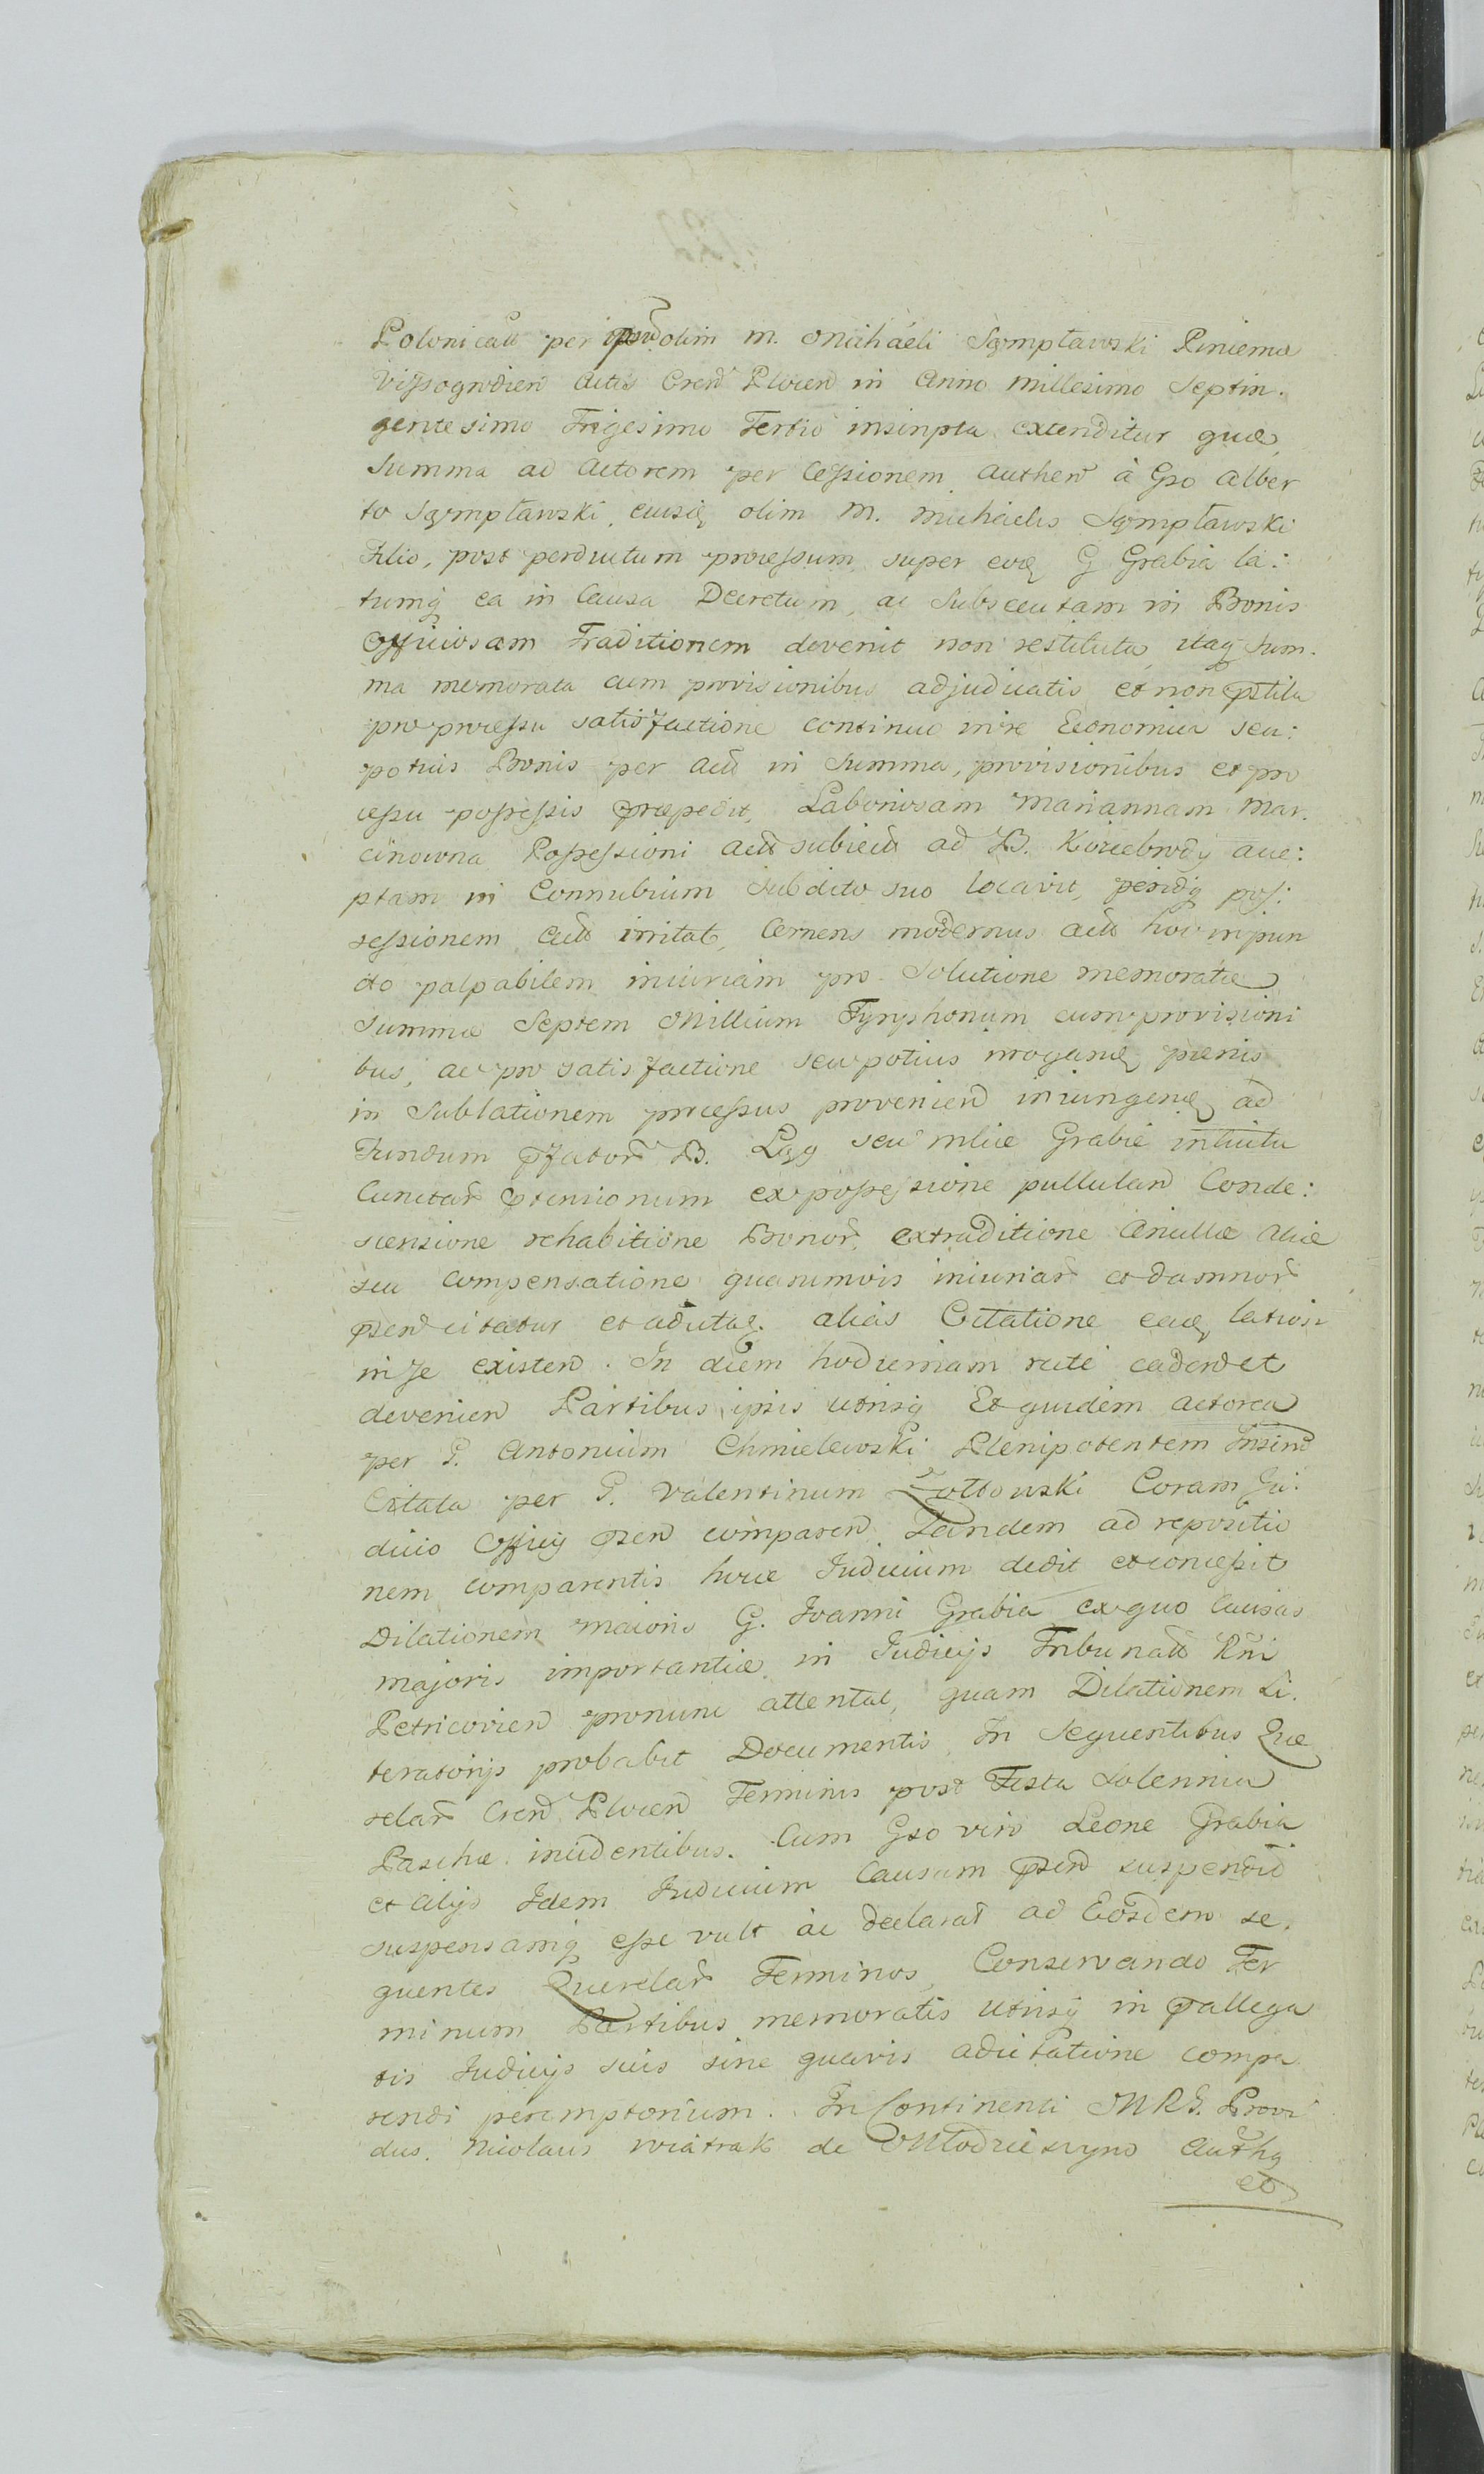 Polonicali per olim M. Michaeli Sąmpławski Pincerna
Vissogrodien Actis Cren Plocen in Anno Millesimo Septin.
gentesimo Trigesimo Tertio inscripta extenditur quæ
Summa ad Actorem per Cessionem Authen à Gso Alber
to Sąmpławski, eiusq olim M. Michaelis Sąmpławski
Filio, post perductum processum super eoq G Grabia la:
tumq ea in Causa Decretum, ac Subsecutam in Bonis
Officiosam Traditionem devenit non restituta, itaq Sum.
ma memorata cum provisionibus adjudicatis et non pstita
pro processu satisfactione continuo in re Economica seu:
potius Bonis per Act in Summa, provisionibus et pro
cessu possessis præpedit, Laboriosam Mariannam Mar.
cinowna Possessioni Act subiect ad B. Koziebrody acce:
ptam in Connubium Subdito suo locavit, pos:
sessionem Act irritat, Cernens modernus Act hoc in pun
cto palpabilem iniuriam pro Solutione memoratæ
Summæ Septem Millium Tymphonum cum provisioni
bus, ac pro satisfactione seu potius irrogandæ pænis
in Sublationem processus provenien iniungendæ ad
Fundum pfator B. seu mlie Grabie intuitu
Cunctar ptensionum ex possessione pullulan Conde:
scensione rehabitione Bonor, extraditione Ancillæ aliæ
seu Compensatione quarumvis iniuriar et damnor
psen citatur et adcitat. alias Citatione eaq latius
in se existen. In diem hodiernam rite caden et
devenien Partibus ipsis utrisq Et quidem Actorea
per G. Antonium Chmielewski Plenipotentem Insim
Citata per G. Valentinum Zołtowski Coram Ju:
dicio Officy psen comparen Tandem ad repositio
nem comparentis hocce Judicium dedit et concessit
Dilationem maioris G. Joanni Grabia ex quo Causas
majoris importantiæ in Judicijs Tribunalt Rni
Petricovien pronunc attentat, quam Dilationem Li.
teratorijs probabit Documentis In Sequentibus Que
relar Cren Plocen Terminis post Festa Solennia
Paschæ incidentibus. Cum Gso viro Leone Grabia
et alijs Idem Judicium Causam psen suspendit
suspensamq esse vult ac declarat ad Eosdem se.
quentes Querelar Terminos, Conservando Ter
minum Partibus memoratis utrisq in pallega
tis Judicijs suis sine quavis adcitatione compa
rendi peremptorium. In Continenti MRG. Provi
dus. Nicolaus Wiatrak de Młodzieszyno Authg
et